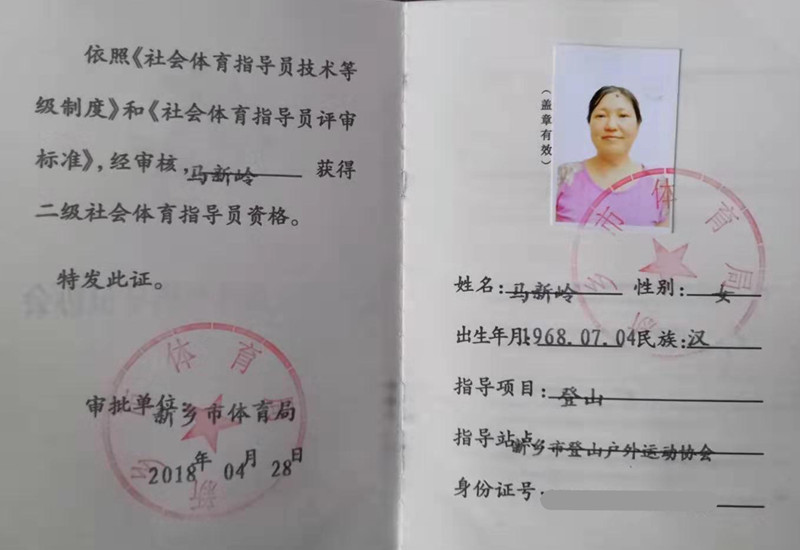 依照《社会体育指导员技术等
级制度》和《社会体育指导员评审
标准》，经审核，马新岭 获得
二级社会体育指导员资格。
特发此证。
体育
审批单位:新乡市体育局
2018年 04月 28日
(盖章有效)
市体育局
姓名:马新岭 性别:女
出生年月:1968.07.04 民族:汉
指导项目:登山
指导站点:新乡市登山户外运动协会
身份证号